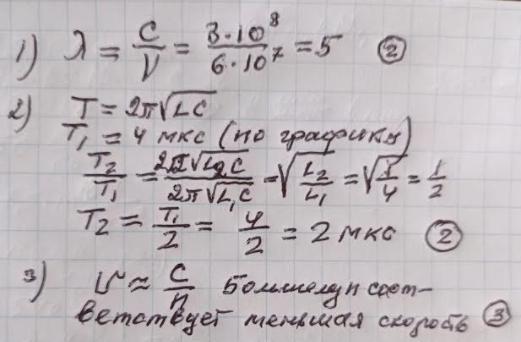 1) λ = C/ν = 3·10⁸/6·10⁷ = 5 ②
2) T = 2π√LC
T₁ = 4 мкс (по графику)
T₂/T₁ = 2π√L₂C/2π√L₁C = √L₂/L₁ = √1/4 = 1/2
T₂ = T₁/2 = 4/2 = 2 мкс ②
3) v ≈ C/n Большему n соот-
ветствует меньшая скорость ③